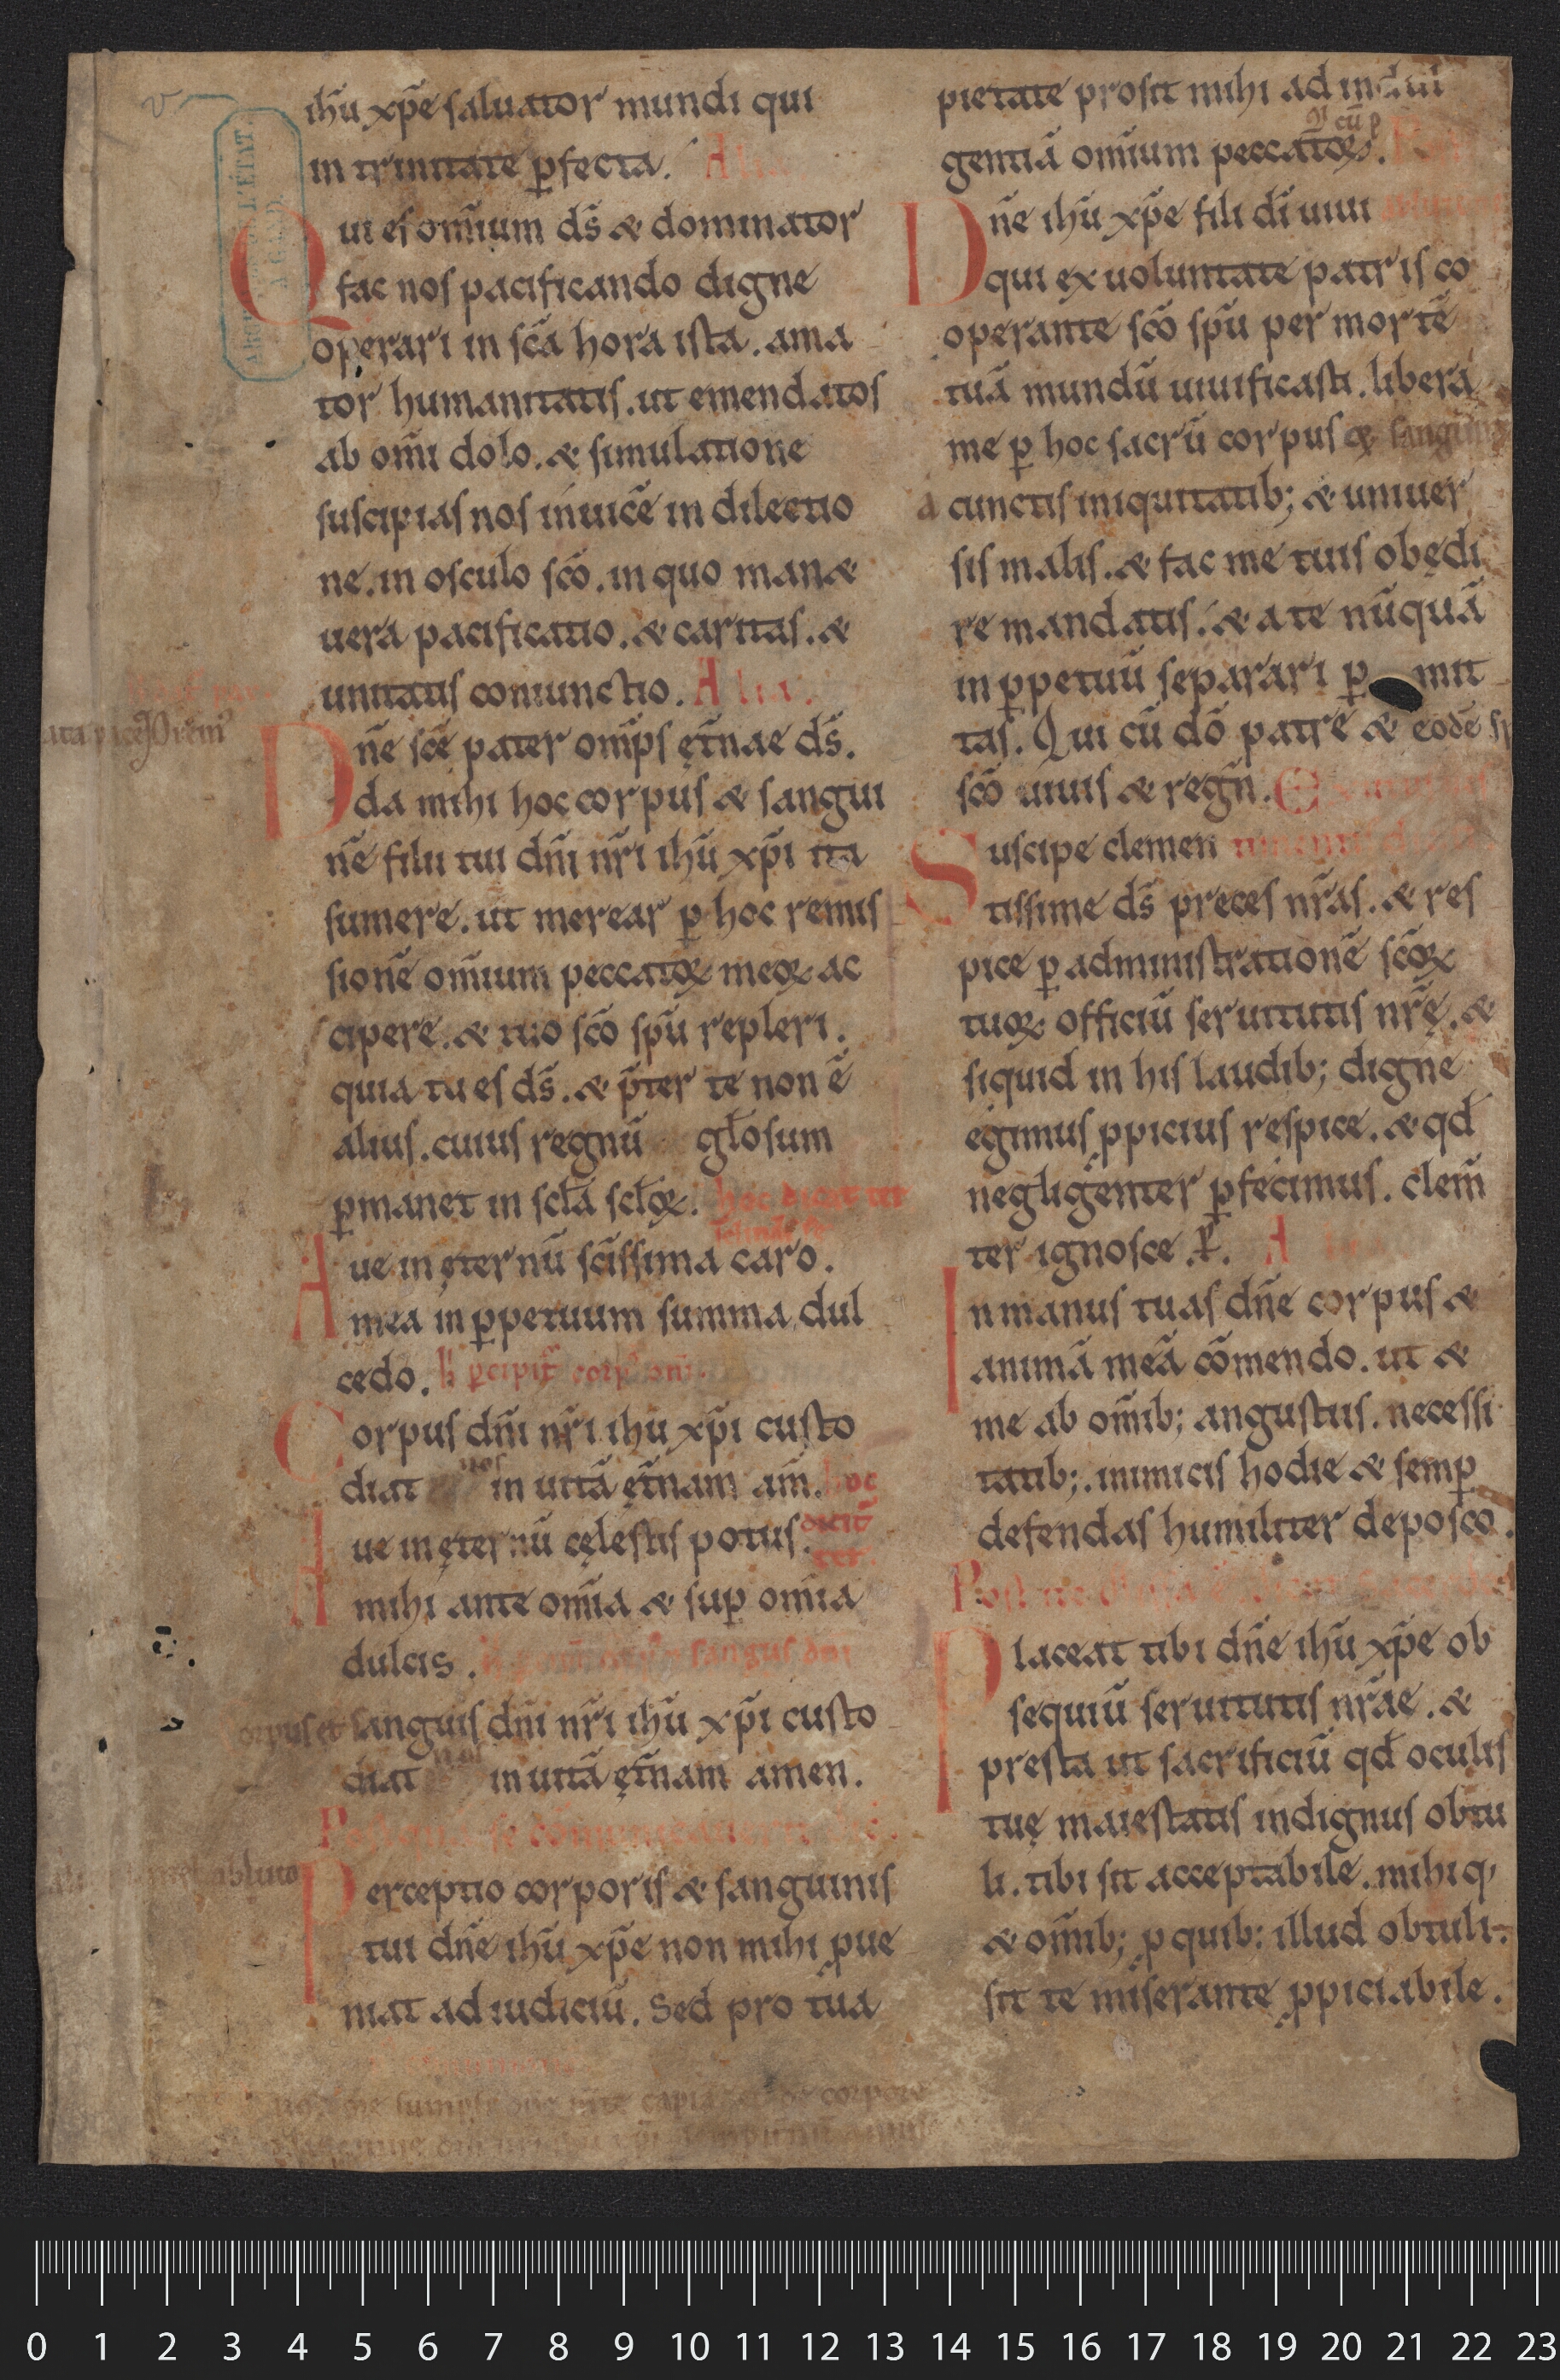 ihū xp̄e saluator mundi qui
in trinitate ꝑfecta. Alia.
Qui es om̄ium ds̄ & dominator
fac nos pacificando digne
operari in sc̄a hora ista. ama
tor humanitatis. ut emendatos
ab om̄i dolo. & simulatione
suscipias nos inuicē in dilectio
ne. in osculo sc̄o. in quo man&
uera pacificatio. & caritas. &
unitatis coniunctio. Alia.
Dn̄e sc̄e pater om̄ps ęt̄nae ds̄.
da mihi hoc corpus & sangui
nē filii tui dn̄i nr̄i ihū xp̄i ita
sumere. ut merear ꝑ hoc remis
sionē om̄ium peccatoꝝ meoꝝ ac
cipere. & tuo sc̄o sp̄u repleri.
quia tu es ds̄. & p̄ter te non ē
alius. cuius regnū gl̄osum
ꝑmanet in scl̄a scl̄oꝝ. hoc dicit ter
Aue in ęternū sc̄issima caro.
mea in ꝑpetuum summa dul
cedo. h̄ ꝑcipit̄ corp̄ dn̄i.
Corpus dn̄i nr̄i ihu xp̄i custo
diat nos in uitā ęt̄nam am̄. hoc
Aue in ęternū cęlestis potus. dicit̄
ter.
mihi ante om̄ia & suꝑ om̄ia
dulcis. sanguis dn̄i
corpus et sanguis dn̄i nr̄i ihū xp̄i custo
diat nos in uitā ęt̄nam amen.
Postquam se
Perceptio corporis & sanguinis
tui dn̄e ihū xp̄e non mihi ꝓue
niat ad iudiciū. Sed pro tua
pietate prosit mihi ad indul
gentiā om̄ium peccatoꝝ.
Qi cū p
Dn̄e ihū xp̄e fili dī uiui
qui ex uoluntate patris co
operante sc̄o sp̄u per mortē
tuā mundū uiuificasti. libera
me ꝑ hoc sacrū corpus & sanguinē
a cunctis iniquitatib; & uniuer
sis malis. & fac me tuis obędi
re mandatis. & a te nūquā
in ꝑpetuū separari ꝑmit
tas. Qui cū dō patre & eodē sp
sc̄o uiuis & regn̄.
Suscipe clemen
tissime ds̄ preces nr̄as. & res
pice ꝑ administrationē sc̄oꝝ
tuoꝝ officiū seruitutis nr̄ę. &
siquid in his laudib; digne
egimus ꝓpicius respice. & qd̄
negligenter ꝑfecimus. clem̄
ter ignosce. P̄. A
In manus tuas dn̄e corpus &
animā meā cōmendo. ut &
me ab om̄ib; angustiis. necessi
tatib;. inimicis hodie & semꝑ
defendas humiliter deposco.
Post
Placeat tibi dn̄e ihū xp̄e ob
sequiū seruitutis nr̄ae. &
presta ut sacrificiū qd̄ oculis
tuę maiestatis indignus obtu
li. tibi sit acceptabile. mihi q,
& om̄ib; ꝓ quib: illud obtuli.
sit te miserante ꝓpiciabile.
0 1 2 3 4 5 6 7 8 9 10 11 12 13 14 15 16 17 18 19 20 21 22 23